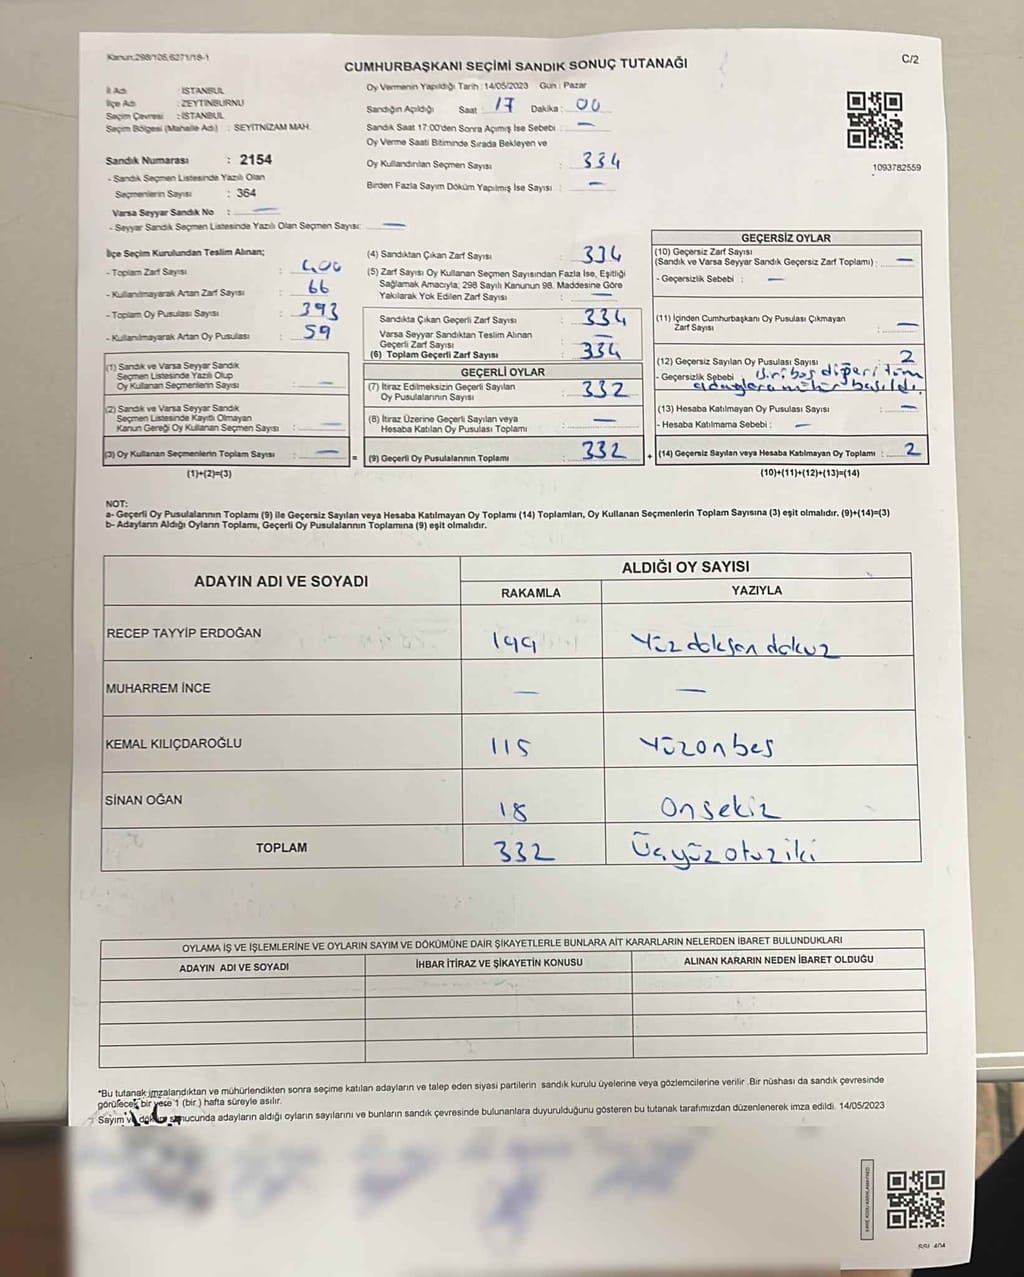 Kanun:298/105,6271/18-1
CUMHURBAŞKANI SEÇİMİ SANDIK SONUÇ TUTANAĞI
C/2
İl Adı : İSTANBUL
İlçe Adı : ZEYTİNBURNU
Seçim Çevresi : İSTANBUL
Seçim Bölgesi (Mahalle Adı) : SEYİTNİZAM MAH.
Sandık Numarası : 2154
- Sandık Seçmen Listesinde Yazılı Olan
Seçmenlerin Sayısı : 364
Varsa Seyyar Sandık No : —
- Seyyar Sandık Seçmen Listesinde Yazılı Olan Seçmen Sayısı: —
Oy Vermenin Yapıldığı Tarih : 14/05/2023 Gün : Pazar
Sandığın Açıldığı Saat : 17 Dakika : 00
Sandık Saat 17:00'den Sonra Açımış İse Sebebi : —
Oy Verme Saati Bitiminde Sırada Bekleyen ve
Oy Kullandırılan Seçmen Sayısı : 334
Birden Fazla Sayım Döküm Yapılmış İse Sayısı : —
1093782559
İlçe Seçim Kurulundan Teslim Alınan;
- Toplam Zarf Sayısı : 400
- Kullanılmayarak Artan Zarf Sayısı : 66
- Toplam Oy Pusulası Sayısı : 393
- Kullanılmayarak Artan Oy Pusulası : 59
(1) Sandık ve Varsa Seyyar Sandık
Seçmen Listesinde Yazılı Olup
Oy Kullanan Seçmenlerin Sayısı : —
(2) Sandık ve Varsa Seyyar Sandık
Seçmen Listesinde Kayıtlı Olmayan
Kanun Gereği Oy Kullanan Seçmen Sayısı : —
(3) Oy Kullanan Seçmenlerin Toplam Sayısı : —
(1)+(2)=(3)
(4) Sandıktan Çıkan Zarf Sayısı : 334
(5) Zarf Sayısı Oy Kullanan Seçmen Sayısından Fazla İse, Eşitliği
Sağlamak Amacıyla; 298 Sayılı Kanunun 98. Maddesine Göre
Yakılarak Yok Edilen Zarf Sayısı : —
Sandıkta Çıkan Geçerli Zarf Sayısı : 334
Varsa Seyyar Sandıktan Teslim Alınan
Geçerli Zarf Sayısı : —
(6) Toplam Geçerli Zarf Sayısı : 334
GEÇERLİ OYLAR
(7) İtiraz Edilmeksizin Geçerli Sayılan
Oy Pusulalarının Sayısı : 332
(8) İtiraz Üzerine Geçerli Sayılan veya
Hesaba Katılan Oy Pusulası Toplamı : —
= (9) Geçerli Oy Pusulalarının Toplamı : 332
GEÇERSİZ OYLAR
(10) Geçersiz Zarf Sayısı
(Sandık ve Varsa Seyyar Sandık Geçersiz Zarf Toplamı) : —
- Geçersizlik Sebebi : —
(11) İçinden Cumhurbaşkanı Oy Pusulası Çıkmayan
Zarf Sayısı : —
(12) Geçersiz Sayılan Oy Pusulası Sayısı : 2
- Geçersizlik Sebebi : biri boş diğeri tüm
adaylara mühür basıldı.
(13) Hesaba Katılmayan Oy Pusulası Sayısı : —
- Hesaba Katılmama Sebebi : —
+ (14) Geçersiz Sayılan veya Hesaba Katılmayan Oy Toplamı : 2
(10)+(11)+(12)+(13)=(14)
NOT:
a- Geçerli Oy Pusulalarının Toplamı (9) ile Geçersiz Sayılan veya Hesaba Katılmayan Oy Toplamı (14) Toplamları, Oy Kullanan Seçmenlerin Toplam Sayısına (3) eşit olmalıdır. (9)+(14)=(3)
b- Adayların Aldığı Oyların Toplamı, Geçerli Oy Pusulalarının Toplamına (9) eşit olmalıdır.
ADAYIN ADI VE SOYADI
ALDIĞI OY SAYISI
RAKAMLA YAZIYLA
RECEP TAYYİP ERDOĞAN 199 Yüz doksan dokuz
MUHARREM İNCE — —
KEMAL KILIÇDAROĞLU 115 Yüzonbeş
SİNAN OĞAN 18 Onsekiz
TOPLAM 332 Üçyüzotuziki
OYLAMA İŞ VE İŞLEMLERİNE VE OYLARIN SAYIM VE DÖKÜMÜNE DAİR ŞİKAYETLERLE BUNLARA AİT KARARLARIN NELERDEN İBARET BULUNDUKLARI
ADAYIN ADI VE SOYADI İHBAR İTİRAZ VE ŞİKAYETİN KONUSU ALINAN KARARIN NEDEN İBARET OLDUĞU
*Bu tutanak imzalandıktan ve mühürlendikten sonra seçime katılan adayların ve talep eden siyasi partilerin sandık kurulu üyelerine veya gözlemcilerine verilir .Bir nüshası da sandık çevresinde
görülecek bir yere 1 (bir.) hafta süreyle asılır.
Sayım ve döküm sonucunda adayların aldığı oyların sayılarını ve bunların sandık çevresinde bulunanlara duyurulduğunu gösteren bu tutanak tarafımızdan düzenlenerek imza edildi. 14/05/2023